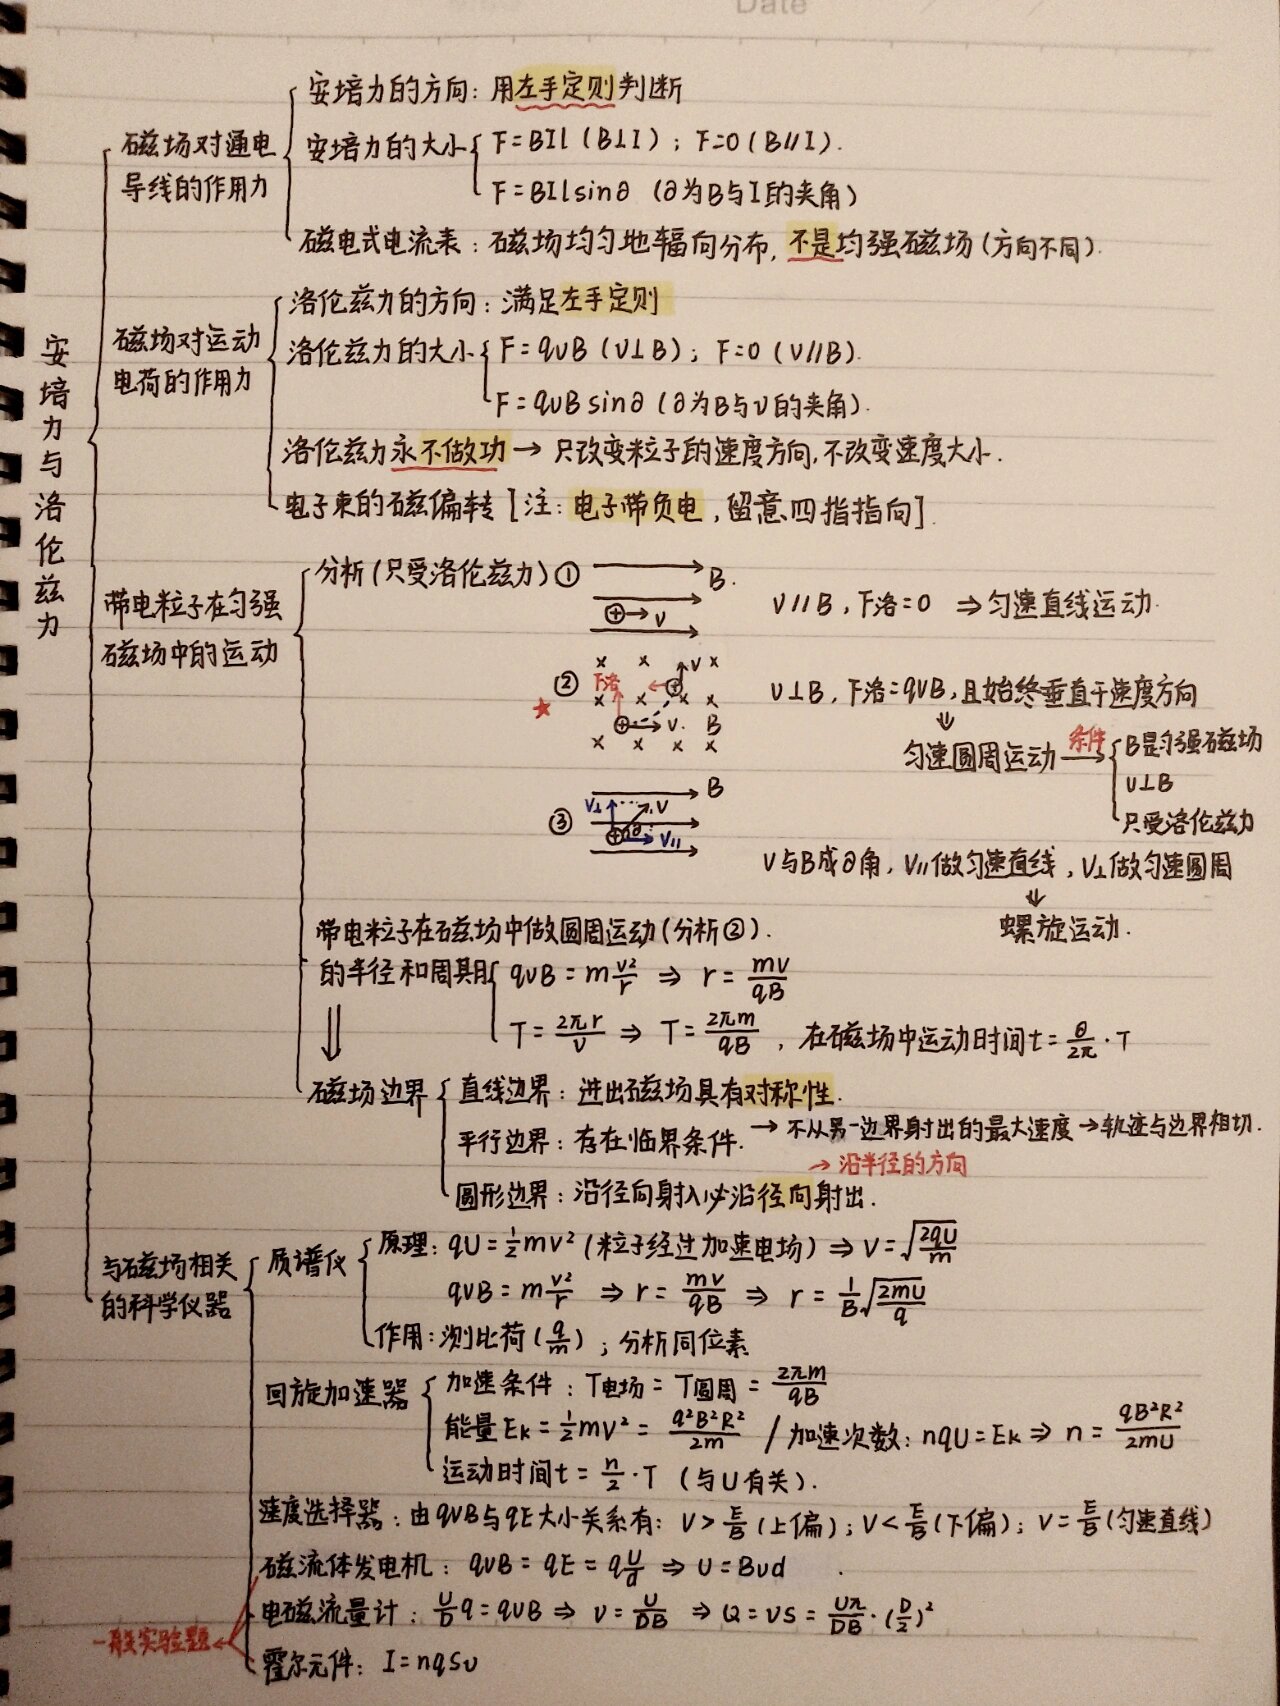 Date
安培力与洛伦兹力
磁场对通电
导线的作用力
安培力的方向：用左手定则判断
安培力的大小
F=BIl (B⊥I)；F=0 (B∥I).
F=BIlsin∂ (∂为B与I的夹角)
磁电式电流表：磁场均匀地辐向分布，不是均强磁场(方向不同).
磁场对运动
电荷的作用力
洛伦兹力的方向：满足左手定则
洛伦兹力的大小
F=qvB (v⊥B)；F=0 (v∥B).
F=qvBsin∂ (∂为B与v的夹角).
洛伦兹力永不做功→只改变粒子的速度方向，不改变速度大小.
电子束的磁偏转[注：电子带负电，留意四指指向].
带电粒子在匀强
磁场中的运动
分析(只受洛伦兹力)① B.
⊕→v
v∥B，F洛=0 ⇒匀速直线运动.
② F洛 v
v B
★
v⊥B，F洛=qvB，且始终垂直于速度方向
⇓
匀速圆周运动 条件→
B是匀强磁场
v⊥B
只受洛伦兹力
③ B
V⊥ V
∂ V∥
V与B成∂角，V∥做匀速直线，V⊥做匀速圆周
⇓
螺旋运动.
带电粒子在磁场中做圆周运动(分析②).
的半径和周期
qvB=m v²/r ⇒ r=mv/qB
T=2πr/v ⇒ T=2πm/qB，在磁场中运动时间t=θ/2π·T
⇓
磁场边界
直线边界：进出磁场具有对称性.
平行边界：存在临界条件.→不从另一边界射出的最大速度→轨迹与边界相切.
→沿半径的方向
圆形边界：沿径向射入必沿径向射出.
与磁场相关
的科学仪器
质谱仪
原理：qU=½mv² (粒子经过加速电场)⇒V=√(2qU/m)
qvB=m v²/r ⇒ r=mv/qB ⇒ r=1/B √(2mU/q)
作用：测比荷(q/m)；分析同位素
回旋加速器
加速条件：T电场=T圆周=2πm/qB
能量Ek=½mv²=q²B²R²/2m / 加速次数：nqU=Ek⇒n=qB²R²/2mU
运动时间t=n/2·T (与U有关).
速度选择器：由qvB与qE大小关系有：V>E/B(上偏)；V<E/B(下偏)；V=E/B(匀速直线)
磁流体发电机：qvB=qE=q U/d ⇒U=Bvd
电磁流量计：U/D q=qvB⇒v=U/DB ⇒Q=vS=Uπ/DB·(D/2)²
霍尔元件：I=nqSv
一般实验题